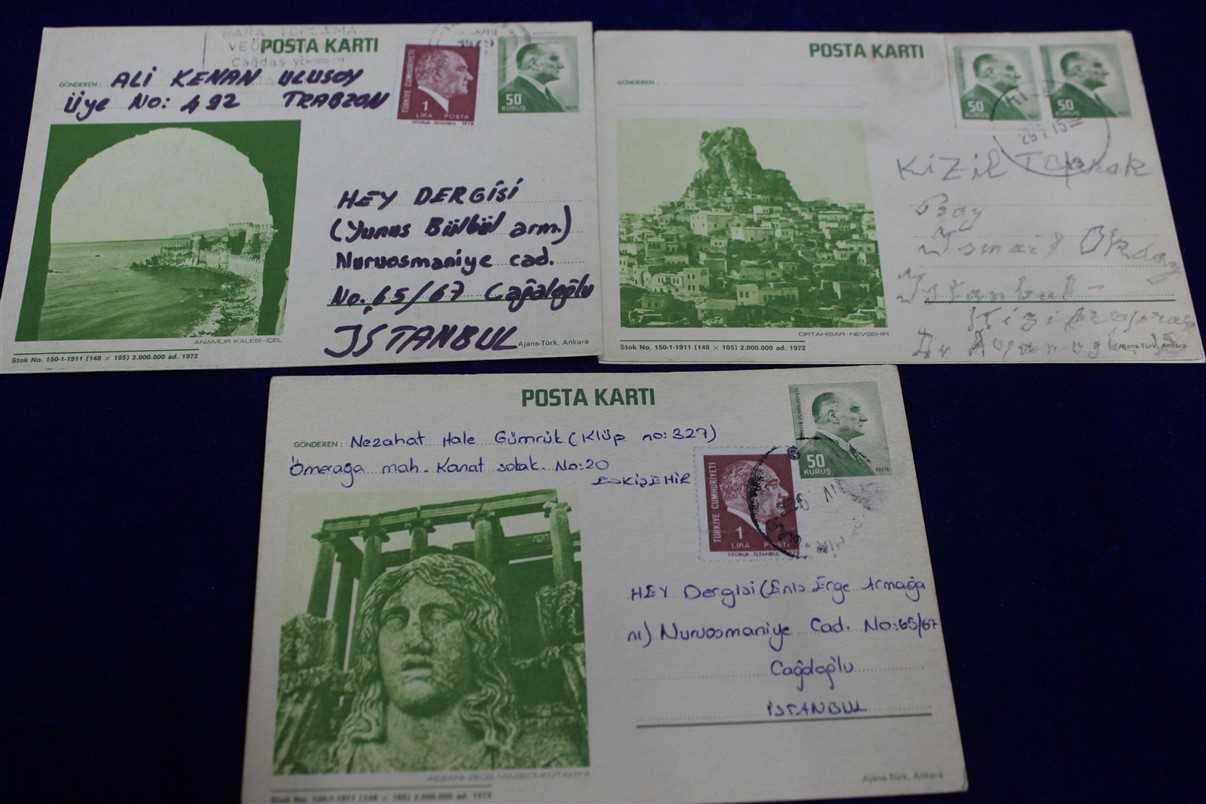 PARA
POSTA KARTI
Çağdaş
GÖNDEREN: ALİ KENAN ULUSOY
Üye No: 492 TRABZON
TÜRKİYE CUMHURİYETİ
1
LİRA POSTA
50
KURUŞ
HEY DERGİSİ
(Yunus Bülbül arm.)
Nuruosmaniye cad.
No. 65/67 Cağaloğlu
İSTANBUL
ANAMUR KALESİ-İÇEL
Stok No. 150-1-1911 (148 × 105) 2.000.000 ad. 1972
Ajans-Türk, Ankara
POSTA KARTI
GÖNDEREN:
50
KURUŞ
50
KURUŞ
Kizil Toprak
İsmail
İstanbul
ORTAHİSAR-NEVŞEHİR
Stok No. 150-1-1911 (148 × 105) 2.000.000 ad. 1972
Ajans-Türk, Ankara
POSTA KARTI
GÖNDEREN: Nezahat Hale Gümrük (Klüp no: 327)
Ömerağa mah. Kanat sokak. No: 20
ESKİŞEHİR
TÜRKİYE CUMHURİYETİ
1
LİRA POSTA
50
KURUŞ
HEY Dergisi (Enis Erge Armağa
nı) Nuruosmaniye Cad. No: 65/67
Cağaloğlu
İSTANBUL
Stok No. 150-1-1911 (148 × 105) 2.000.000 ad. 1972
Ajans-Türk, Ankara